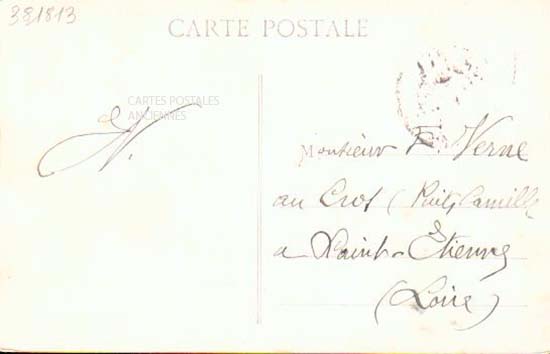 381813
CARTE POSTALE
CARTES POSTALES
ANCIENNES
Monsieur F. Verne
au Crot (Puits Camille
a Saint-Étienne
(Loire)